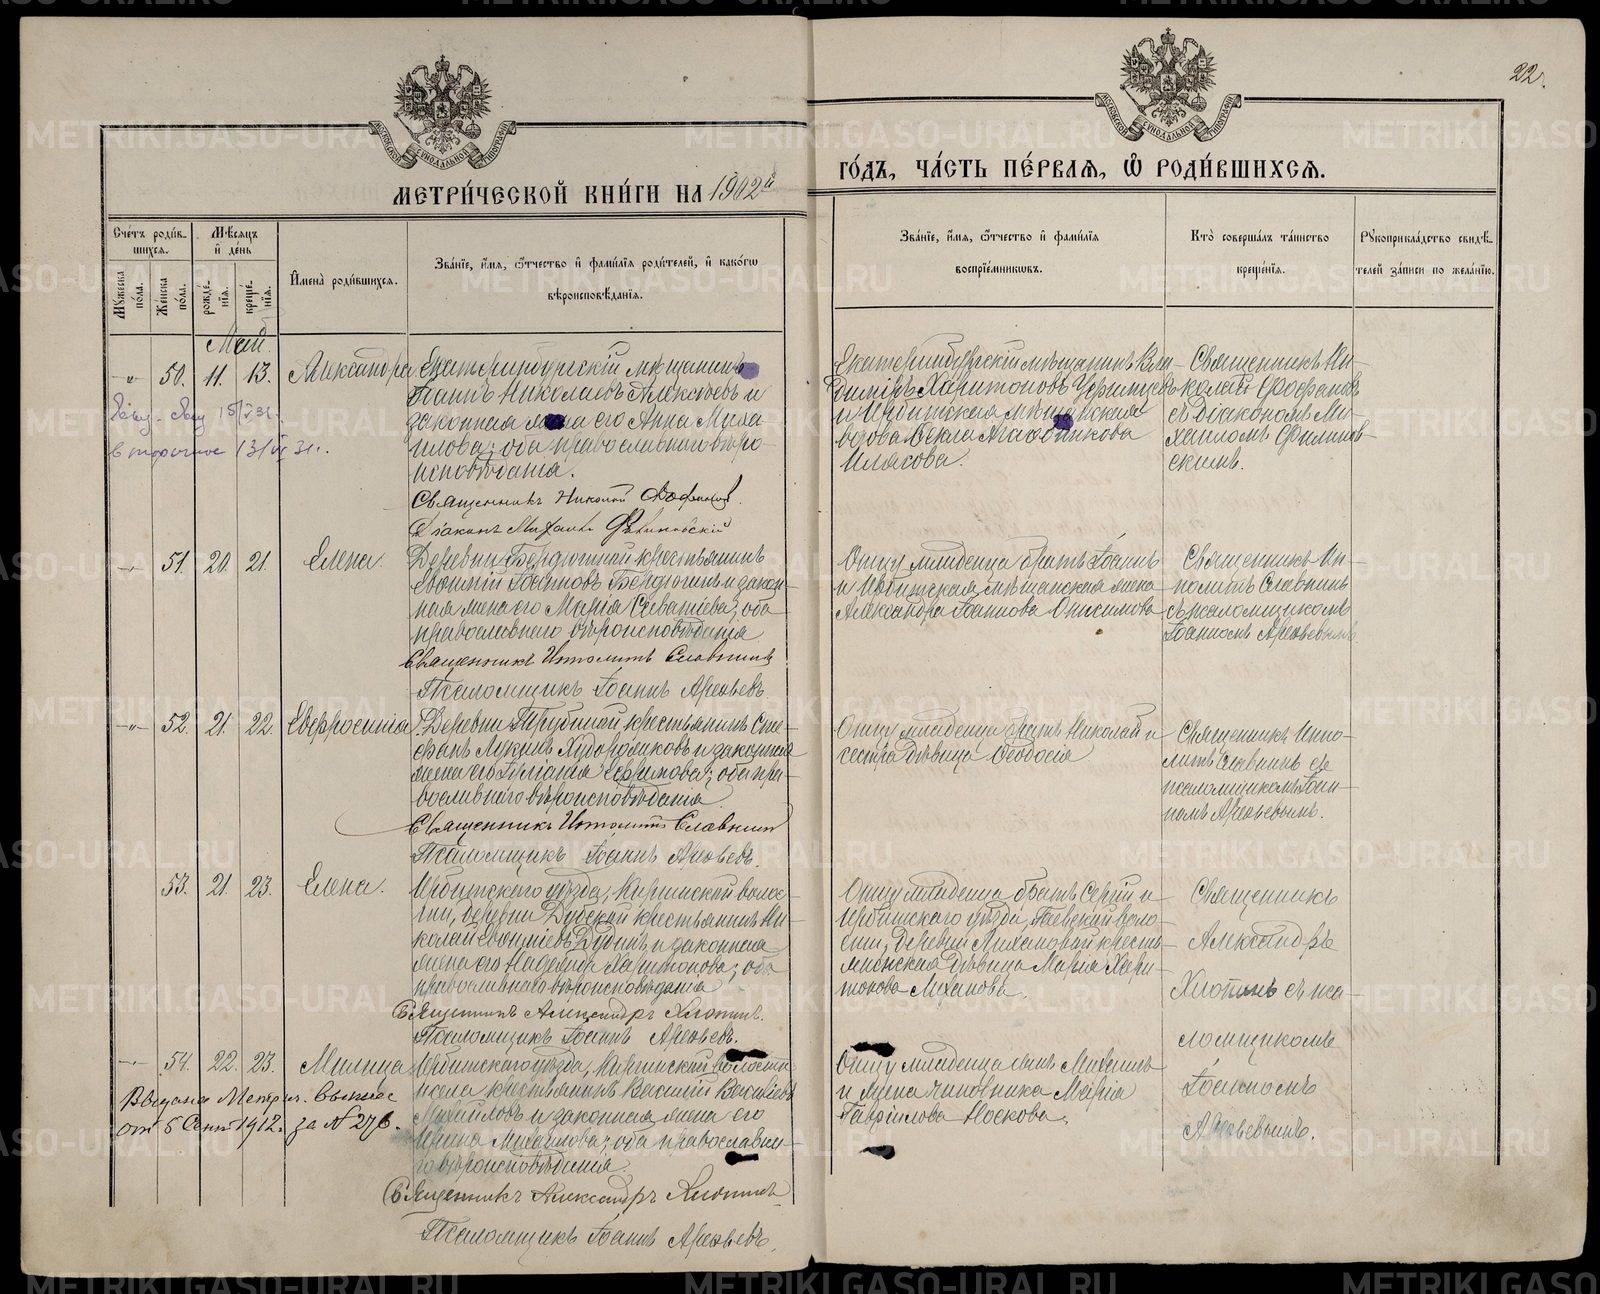 22.
МЕТРИ́ЧЕСКОЙ КНИ́ГИ НА 1902й
ГО́ДЪ, ЧА́СТЬ ПЕ́РВАѦ, Ѽ РОДИ́ВШИХСѦ.
МОСКОВСКОЙ СѴНОДАЛЬНОЙ ТИПОГРАФІИ
МОСКОВСКОЙ СѴНОДАЛЬНОЙ ТИПОГРАФІИ
Сче́тъ роди́вшихсѧ.
Мꙋ́жеска по́ла.
Же́нска по́ла.
Мѣ́сѧцъ и҆ де́нь
рожде́нїѧ.
креще́нїѧ.
И҆мена̀ роди́вшихсѧ.
Зва́нїе, и҆́мѧ, ѻ҆́тчество и҆ фами́лїѧ роди́телей, и҆ како́гѡ
вѣроисповѣ́данїѧ.
Зва́нїе, и҆́мѧ, ѻ҆́тчество и҆ фами́лїѧ
воспрїе́мникѡвъ.
Кто̀ соверша́лъ та́инство
креще́нїѧ.
Рꙋкоприкла́дство свидѣ́-
телей за́писи по жела́нїю.
Май.
" 50. 11. 13. Александра
Екатеринбургскій мѣщанинъ
Іоаннъ Николаевъ Алексѣевъ и
законная жена его Анна Миха
илова; оба православнаго вѣро
исповѣданія.
Священникъ Николай Ѳеофановъ.
Діаконъ Михаилъ Филиновскій
Екатеринбургскій мѣщанинъ Вла
диміръ Харитоновъ
и Ирбитская мѣщанская
вдова Ѳекла Агафоникова
Священникъ Ни-
колай Ѳеофановъ
съ Діакономъ Ми-
хаиломъ Филинов-
скимъ.
15/V 31.
вторичное 13/VI 31 г.
51. 20. 21. Елена.
Деревни Бердюгиной крестьянинъ
Евѳимій Іоанновъ Бердюгинъ и закон-
ная жена его Марія Савватіева; оба
православнаго вѣроисповѣданія
Священникъ Ипполитъ Славнинъ
Псаломщикъ Іоаннъ Арефьевъ.
Отцу младенца братъ Іоаннъ
и Ирбитская мѣщанская жена
Александра Іоаннова Онисимова
Священникъ Ип-
политъ Славнинъ
съ псаломщикомъ
Іоанномъ Арефьевымъ
" 52. 21. 22. Евфросинія
Деревни Трубиной крестьянинъ Сте-
фанъ Лукинъ Худорожковъ и законная
жена его Іуліанія Ефимова; оба пра-
вославнаго вѣроисповѣданія.
Священникъ Ипполитъ Славнинъ
Псаломщикъ Іоаннъ Арефьевъ.
Отцу младенца братъ Николай и
сестра дѣвица Ѳеодосія
Священникъ Иппо-
литъ Славнинъ съ
псаломщикомъ Іоан-
номъ Арефьевымъ.
53. 21. 23. Елена.
Ирбитскаго уѣзда, Киргинской волос-
ти, деревни Дубской крестьянинъ Ни-
колай Евѳиміевъ Дубинъ и законная
жена его Надежда Харитонова; оба
православнаго вѣроисповѣданія.
Священникъ Александръ Хлопинъ.
Псаломщикъ Іоаннъ Арефьевъ.
Отцу младенца братъ Сергій и
Ирбитскаго уѣзда, Гаевской воло-
сти, деревни Лихановой кресть-
янская дѣвица Марія Хари-
тонова Лиханова.
Священникъ
Александръ
Хлопинъ съ пса-
ломщикомъ
Іоанномъ
Арефьевымъ.
54. 22. 23. Милица
Ирбитскаго уѣзда, Киргинской волости
и села крестьянинъ Василій Васильевъ
Михайловъ и законная жена его
Ирина Михайлова; оба православна-
го вѣроисповѣданія.
Священникъ Александръ Хлопинъ
Псаломщикъ Іоаннъ Арефьевъ.
Отцу младенца сынъ Михаилъ
и жена чиновника Марія
Гаврилова Носкова.
Выдана Метрич. выпис
от 6 Сент 1912 г. за № 276.